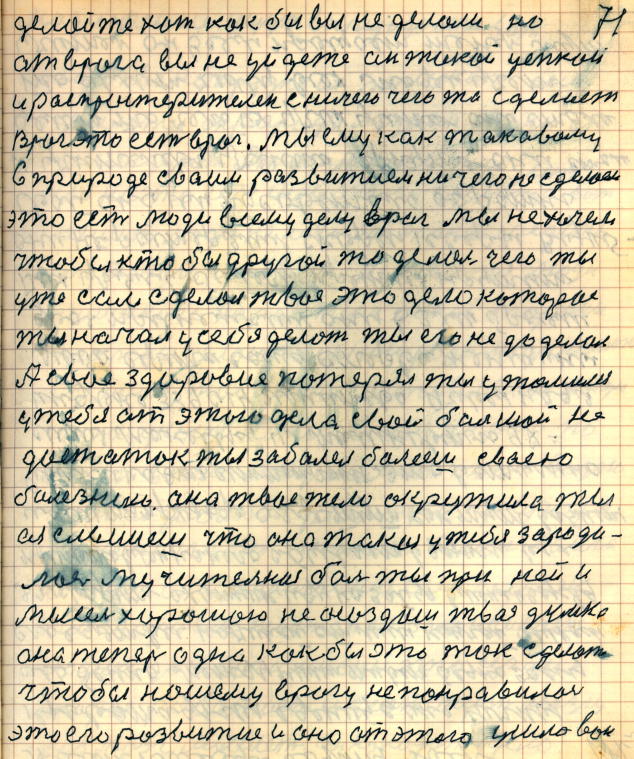 делойте хот как бы вы не делоли но 71
от врога вы не уйдете он токой цепкой
с ничего чего то сделает
Врог это ест врог. Мы ему как токовому
В природе своим розвитием ничего не сделоем
это ест люди всему делу врог мы не хочем
чтобы кто бы другой то делол чего ты
уже сам сделол твое это дело которое
ты начал у себя делот ты его не доделол
А свое здоровие потерял ты утомился
у тебя от этого дела свой болной не
достаток ты заболел болееш своею
болезнию. она твое тело окружила ты
слышиш что она токая у тебя зароди-
лоя мучителноя бол ты при ней и
мысел хорошою не создаш твоя думка
она тепер одна как бы это ток сделот
чтобы ношему врогу не понравилоя
это его розвитие и оно от этого ушло вон